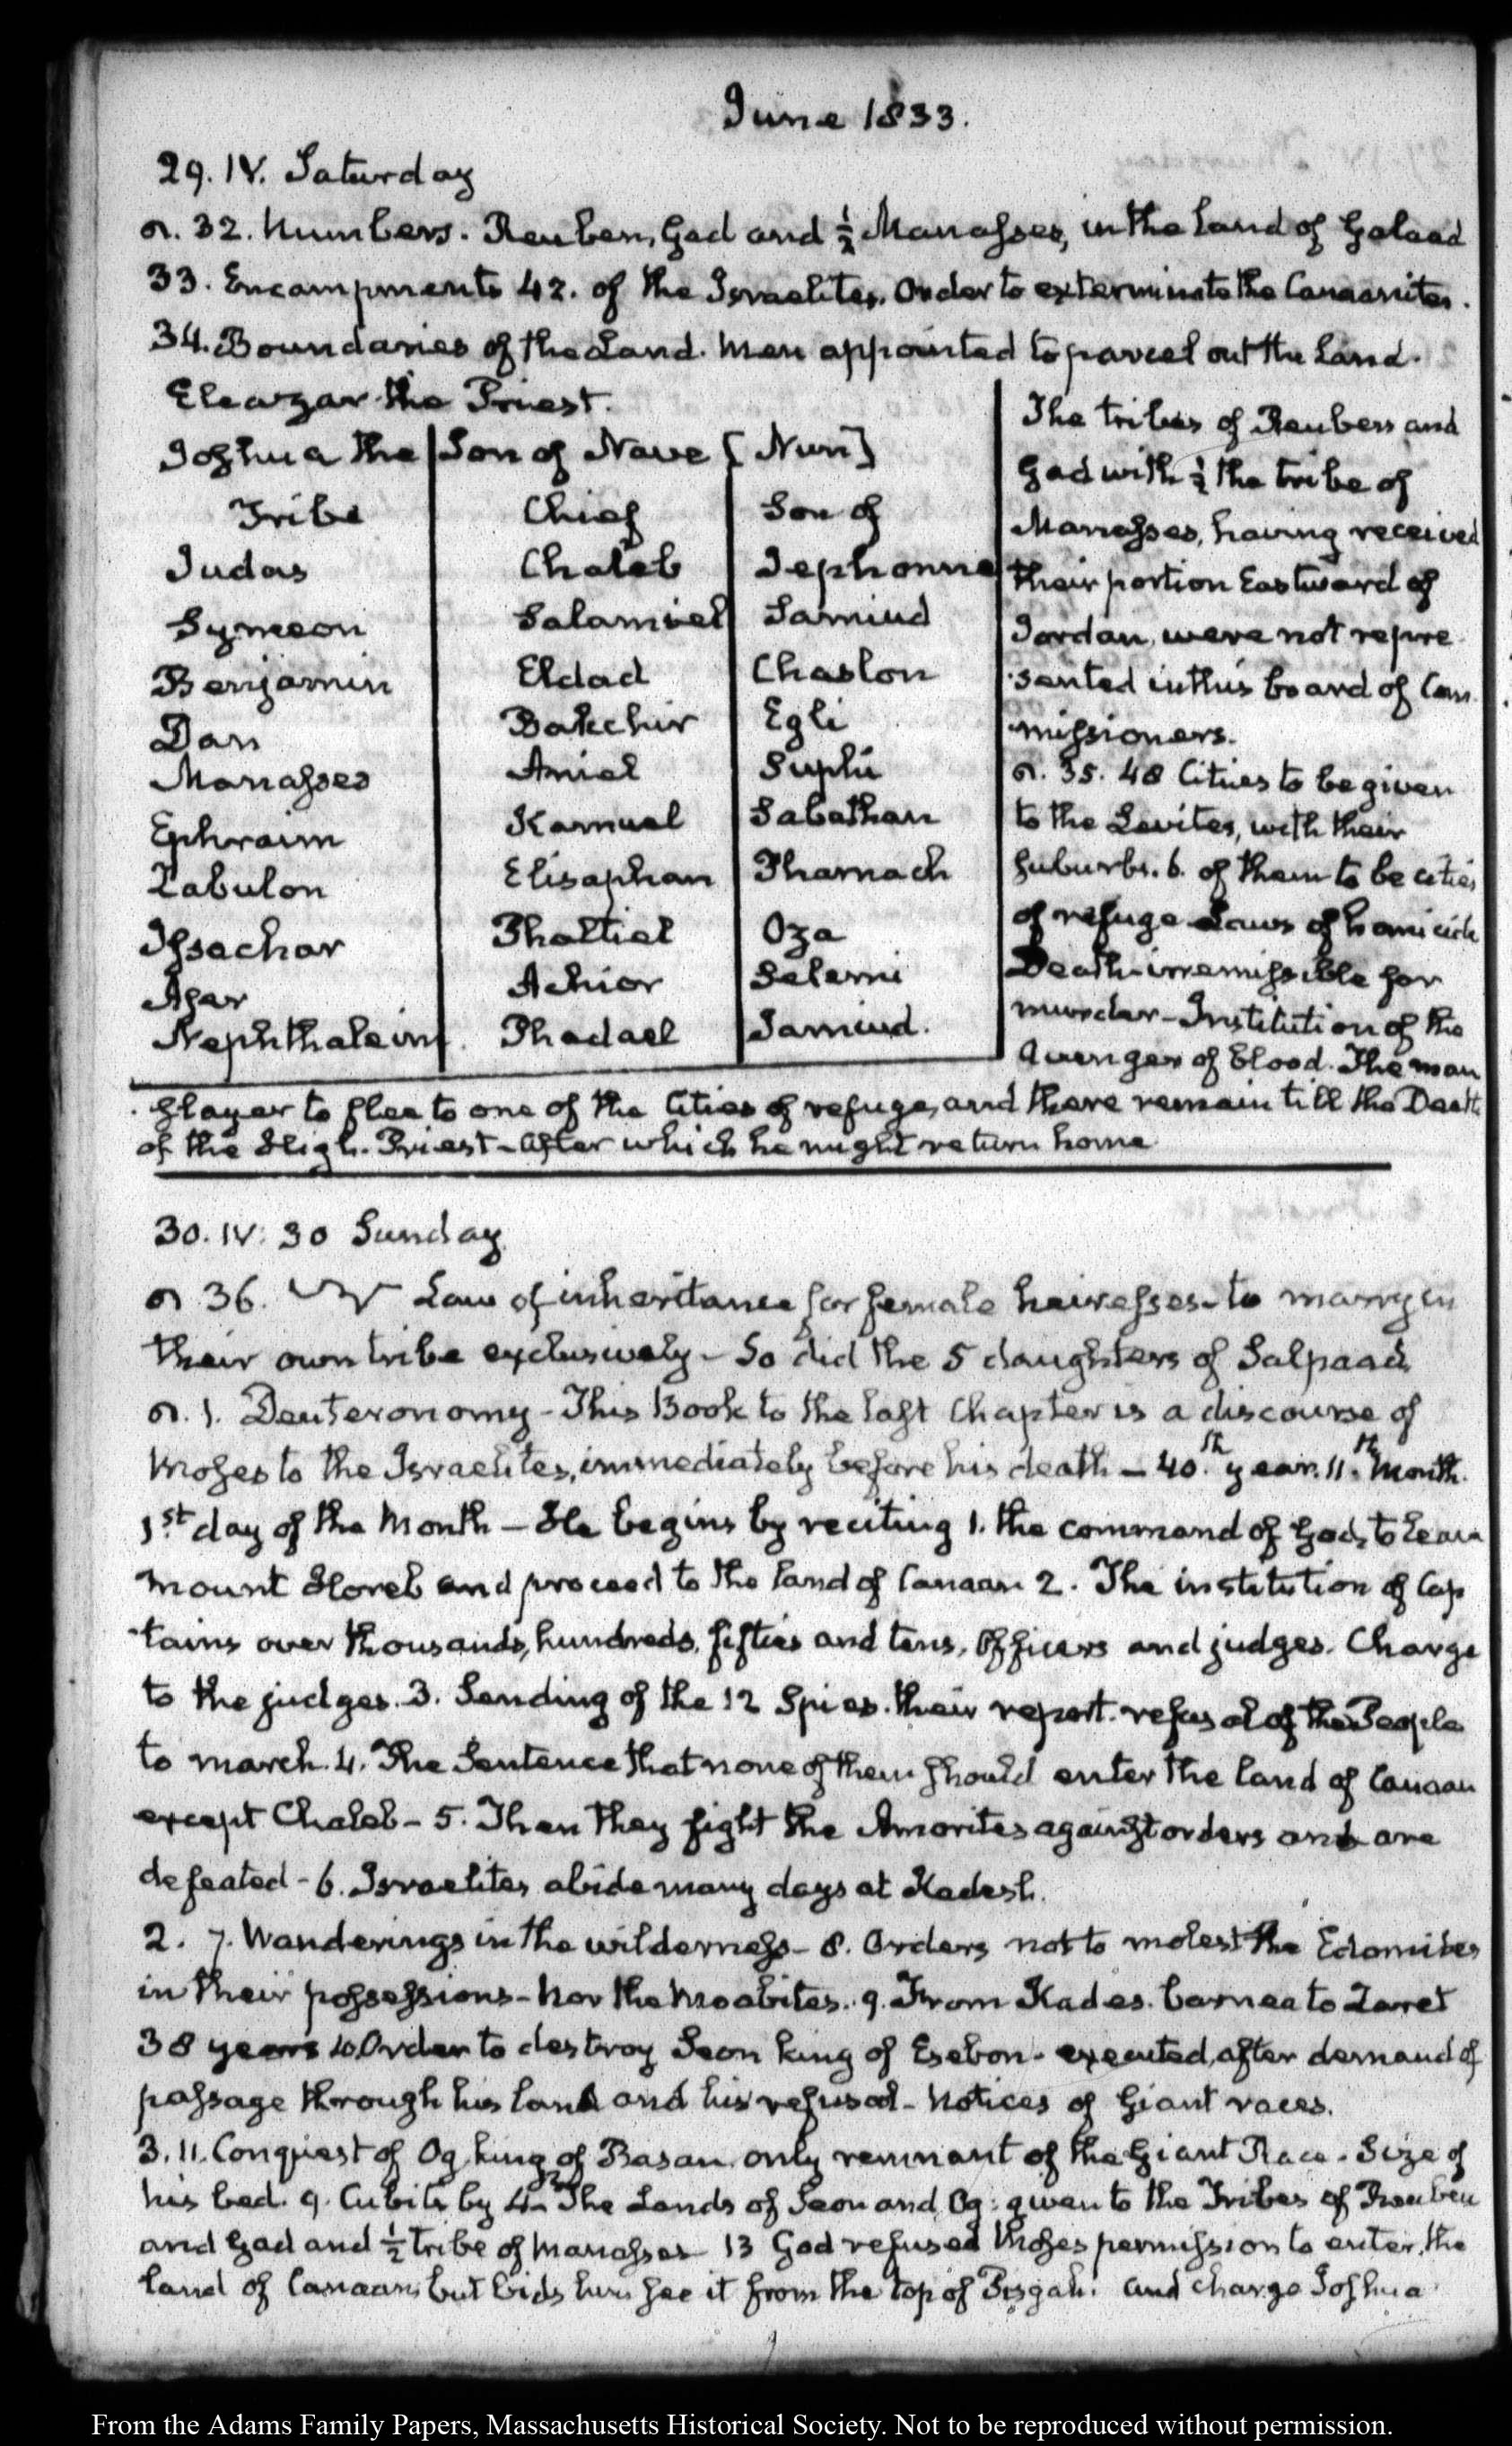 June 1833.
29. IV. Saturday
32. Numbers. Reuben, Gad and ½ Manasses, in the land of Galaad
33. Encampments 42. of the Israelites. Order to exterminate the Canaanites.
34. Boundaries of the Land. Men appointed to parcel out the Land.
Eleazar the Priest.
Joshua the Son of Nave [Nun]
Tribe Chief Son of
Judas Chaleb Jephonne
Symeon Salamiel Samiud
Benjamin Eldad Chaslon
Dan Bakchir Egli
Manasses Aniel Suphi
Ephraim Kamuel Sabathan
Zabulon Elisaphan Pharnach
Issachar Phaltiel Oza
Aser Achior Selemi
Nephthaleim. Phadael Jamiud.
The tribes of Reuben and
Gad with ½ the tribe of
Manasses, having received
their portion Eastward of
Jordan, were not repre
sented in this board of Com
missioners.
35. 48 Cities to be given
to the Levites, with their
suburbs. 6. of them to be cities
of refuge Laws of homicide
Death irremissible for
murder—Institution of the
Avenger of blood. The man
slayer to flee to one of the Cities of refuge, and there remain till the Death
of the High-Priest—After which he might return home
30. IV: 30 Sunday
36. Law of inheritance for female heiresses—to marry in
their own tribe exclusively—So did the 5 daughters of Salpaad
1. Deuteronomy—This Book to the last Chapter is a discourse of
Moses to the Israelites, immediately before his death—40.th year. 11.th Month.
1st day of the Month—He begins by reciting 1. the command of God, to leave
Mount Horeb and proceed to the land of Canaan 2. The institution of Cap
tains over thousands, hundreds, fifties and tens, Officers and judges. Charge
to the judges. 3. Sending of the 12 Spies. their report. refusal of the People
to march. 4. The Sentence that none of them should enter the land of Canaan
except Chaleb—5. Then they fight the Amorites against orders and are
defeated—6. Israelites abide many days at Kadesh.
2. 7. Wanderings in the wilderness—8. Orders not to molest the Edomites
in their possessions—Nor the Moabites. 9. From Kades. barnea to Zaret
38 years 10. Order to destroy Seon king of Esebon—executed, after demand of
passage through his land and his refusal—Notices of Giant races.
3. 11. Conquest of Og king of Basan, only remnant of the Giant Race. Size of
his bed. 9. Cubits by 4—12 The Lands of Seon and Og: given to the Tribes of Reuben
and Gad and ½ tribe of Manasses 13 God refused Moses permission to enter, the
land of Canaan, but bids him see it from the top of Pisgah: and charge Joshua
From the Adams Family Papers, Massachusetts Historical Society. Not to be reproduced without permission.